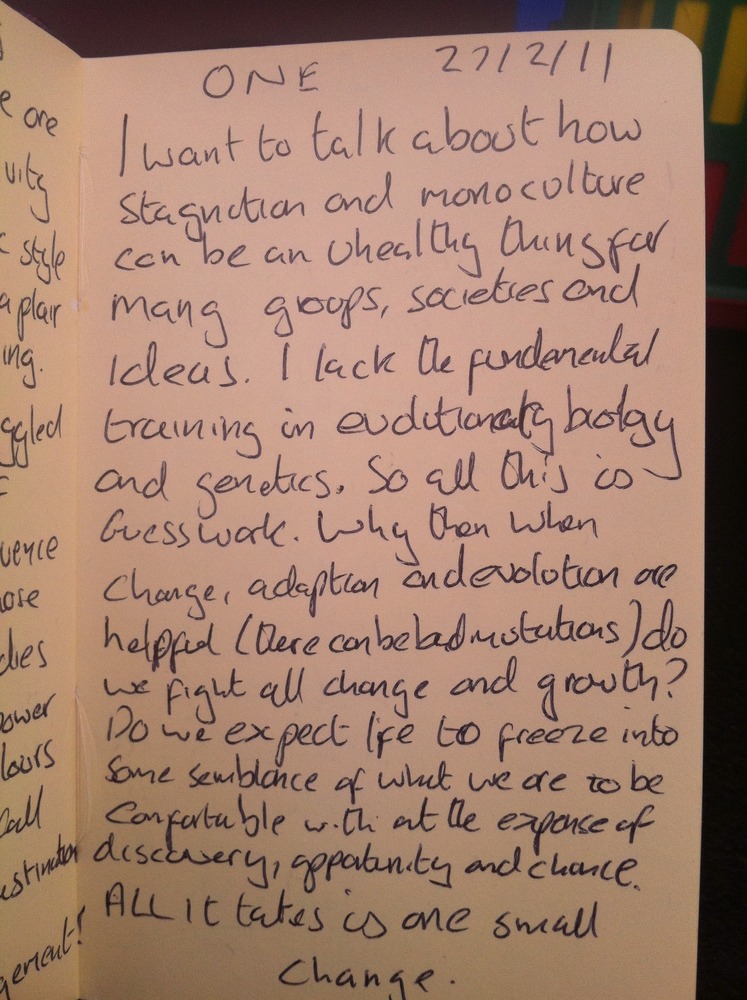 e are
vity
style
a plair
ing.
ggled
uence
ose
dies
power
lours
Call
estination
gement!
ONE 27/2/11
I want to talk about how
stagnation and monoculture
can be an uhealthy thing for
many groups, societies and
ideas. I lack the fundamental
training in evolutionary biology
and genetics. So all this is
Guesswork. Why then when
change, adaption and evolution are
helpful (there can be bad mutations) do
we fight all change and growth?
Do we expect life to freeze into
some semblance of what we are to be
comfortable with at the expense of
discovery, opportunity and chance.
ALL it takes is one small
change.